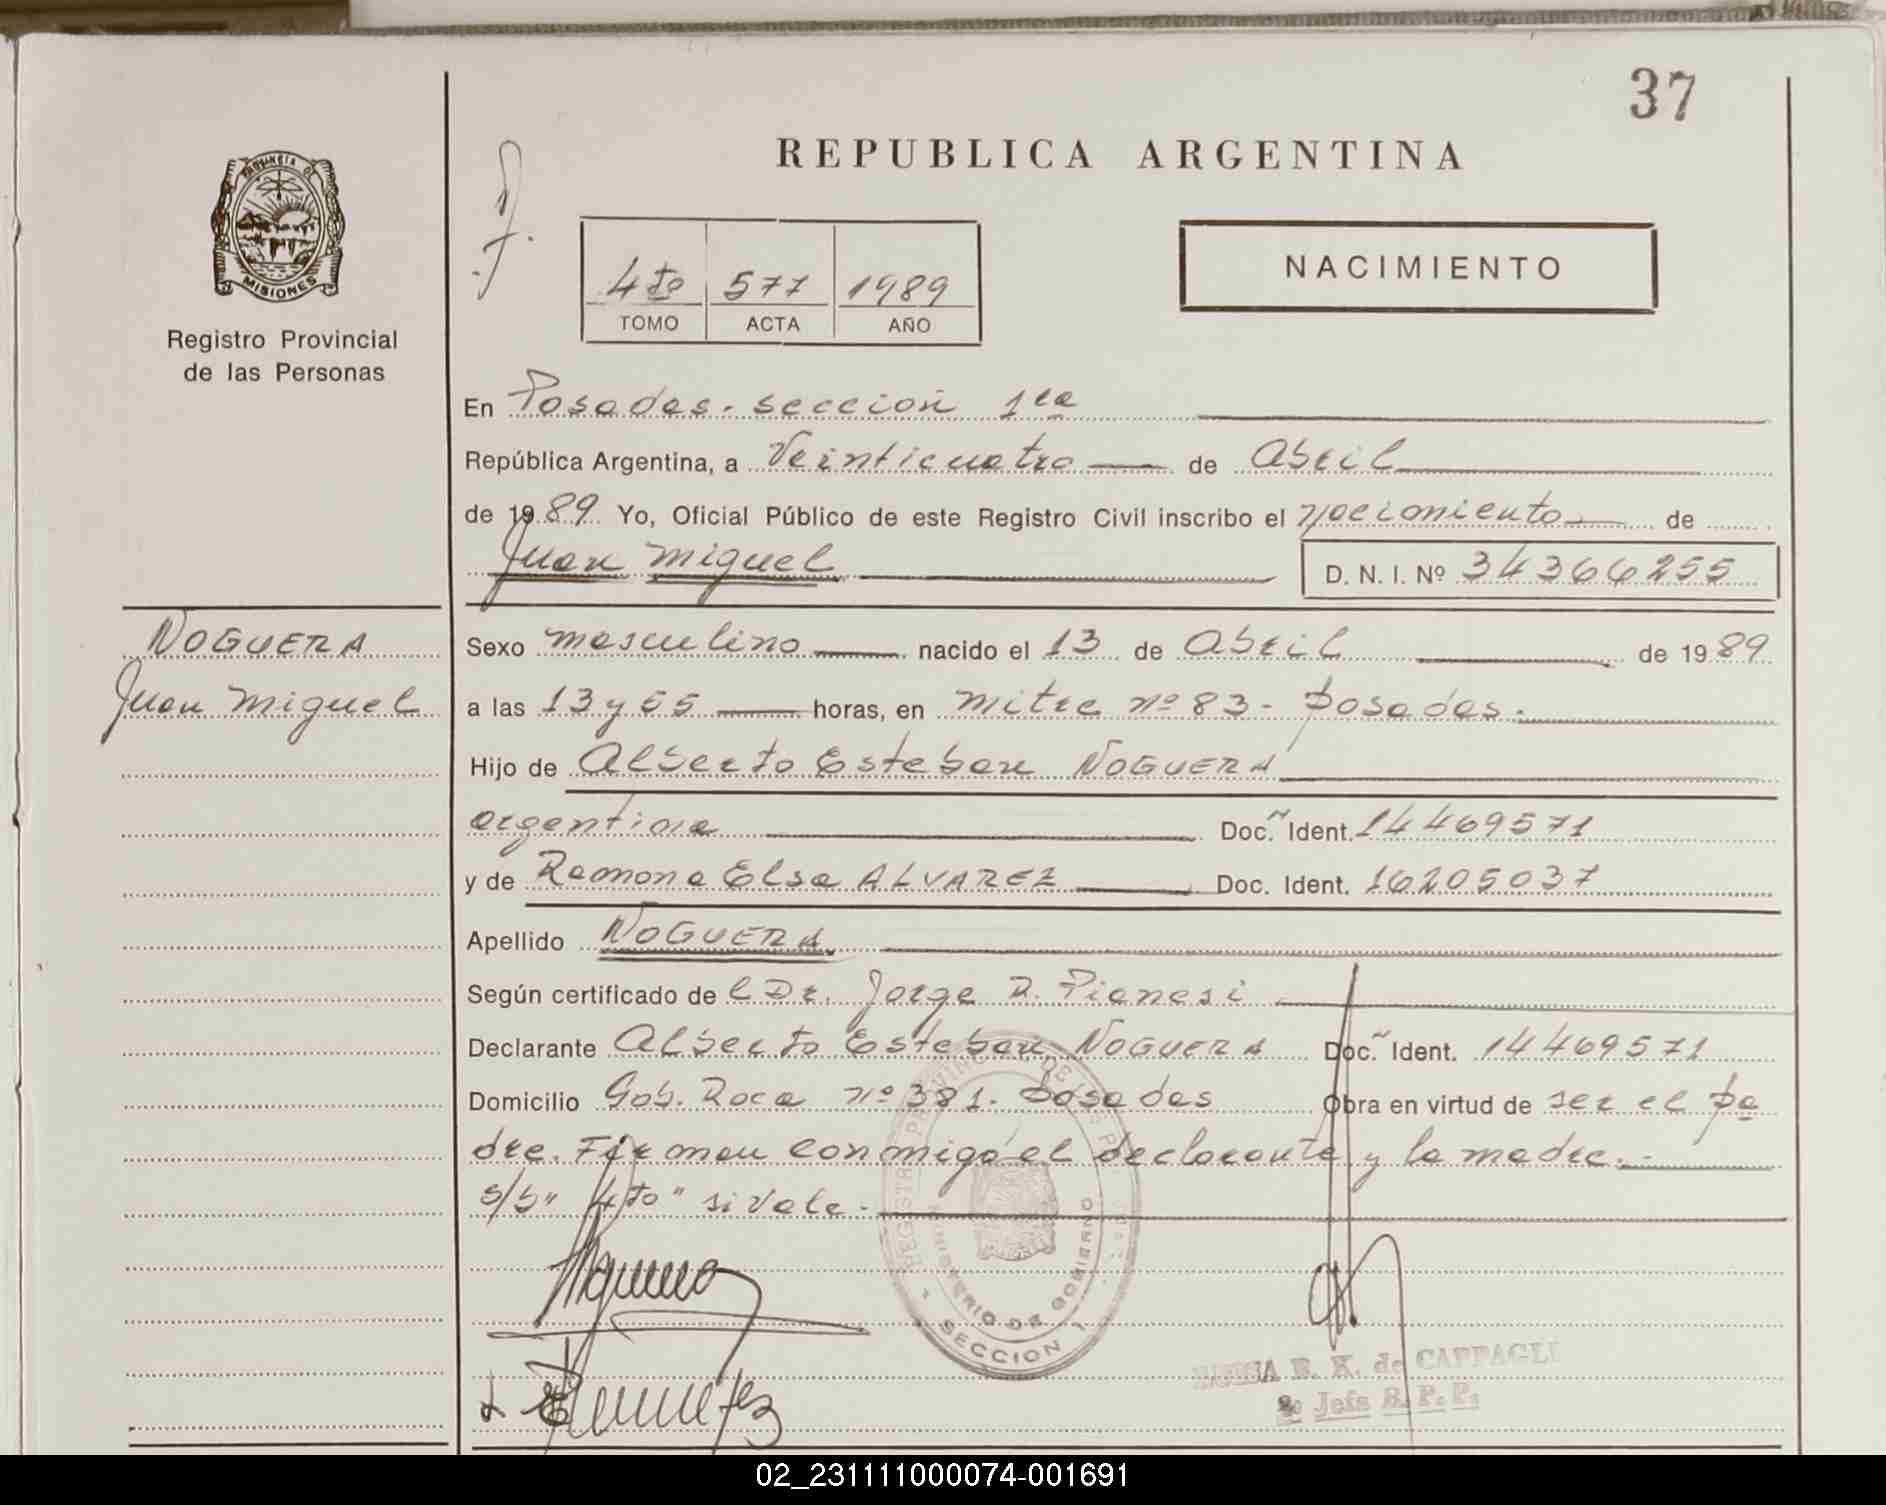 37
REPUBLICA ARGENTINA
PROVINCIA DE
MISIONES
Registro Provincial
de las Personas
4to 577 1989
TOMO ACTA AÑO
NACIMIENTO
En Posadas. sección 1ra
República Argentina, a Veinticuatro de Abril
de 1989 Yo, Oficial Público de este Registro Civil inscribo el nacimiento de
Juan Miguel D. N. I. Nº 34366255
NOGUERA
Juan Miguel
Sexo masculino nacido el 13 de Abril de 1989
a las 13 y 55 horas, en Mitre nº 83 - Posadas.
Hijo de Alberto Esteban NOGUERA
argentina Doc. Ident. 14469571
y de Ramona Elsa ALVAREZ Doc. Ident. 16205037
Apellido NOGUERA
Según certificado de l Dr. Jorge R. Pianesi
Declarante Alberto Esteban NOGUERA Doc. Ident. 14469571
Domicilio Gob. Roca nº 381. Posadas Obra en virtud de ser el pa
dre. Firman conmigo el declarante y la madre.-
s/b" 4to" si vale.-
MINISTERIO DE GOBIERNO
SECCION 1
B. K. de CAPPAGLI
Jefe R. P. P.
02_231111000074-001691